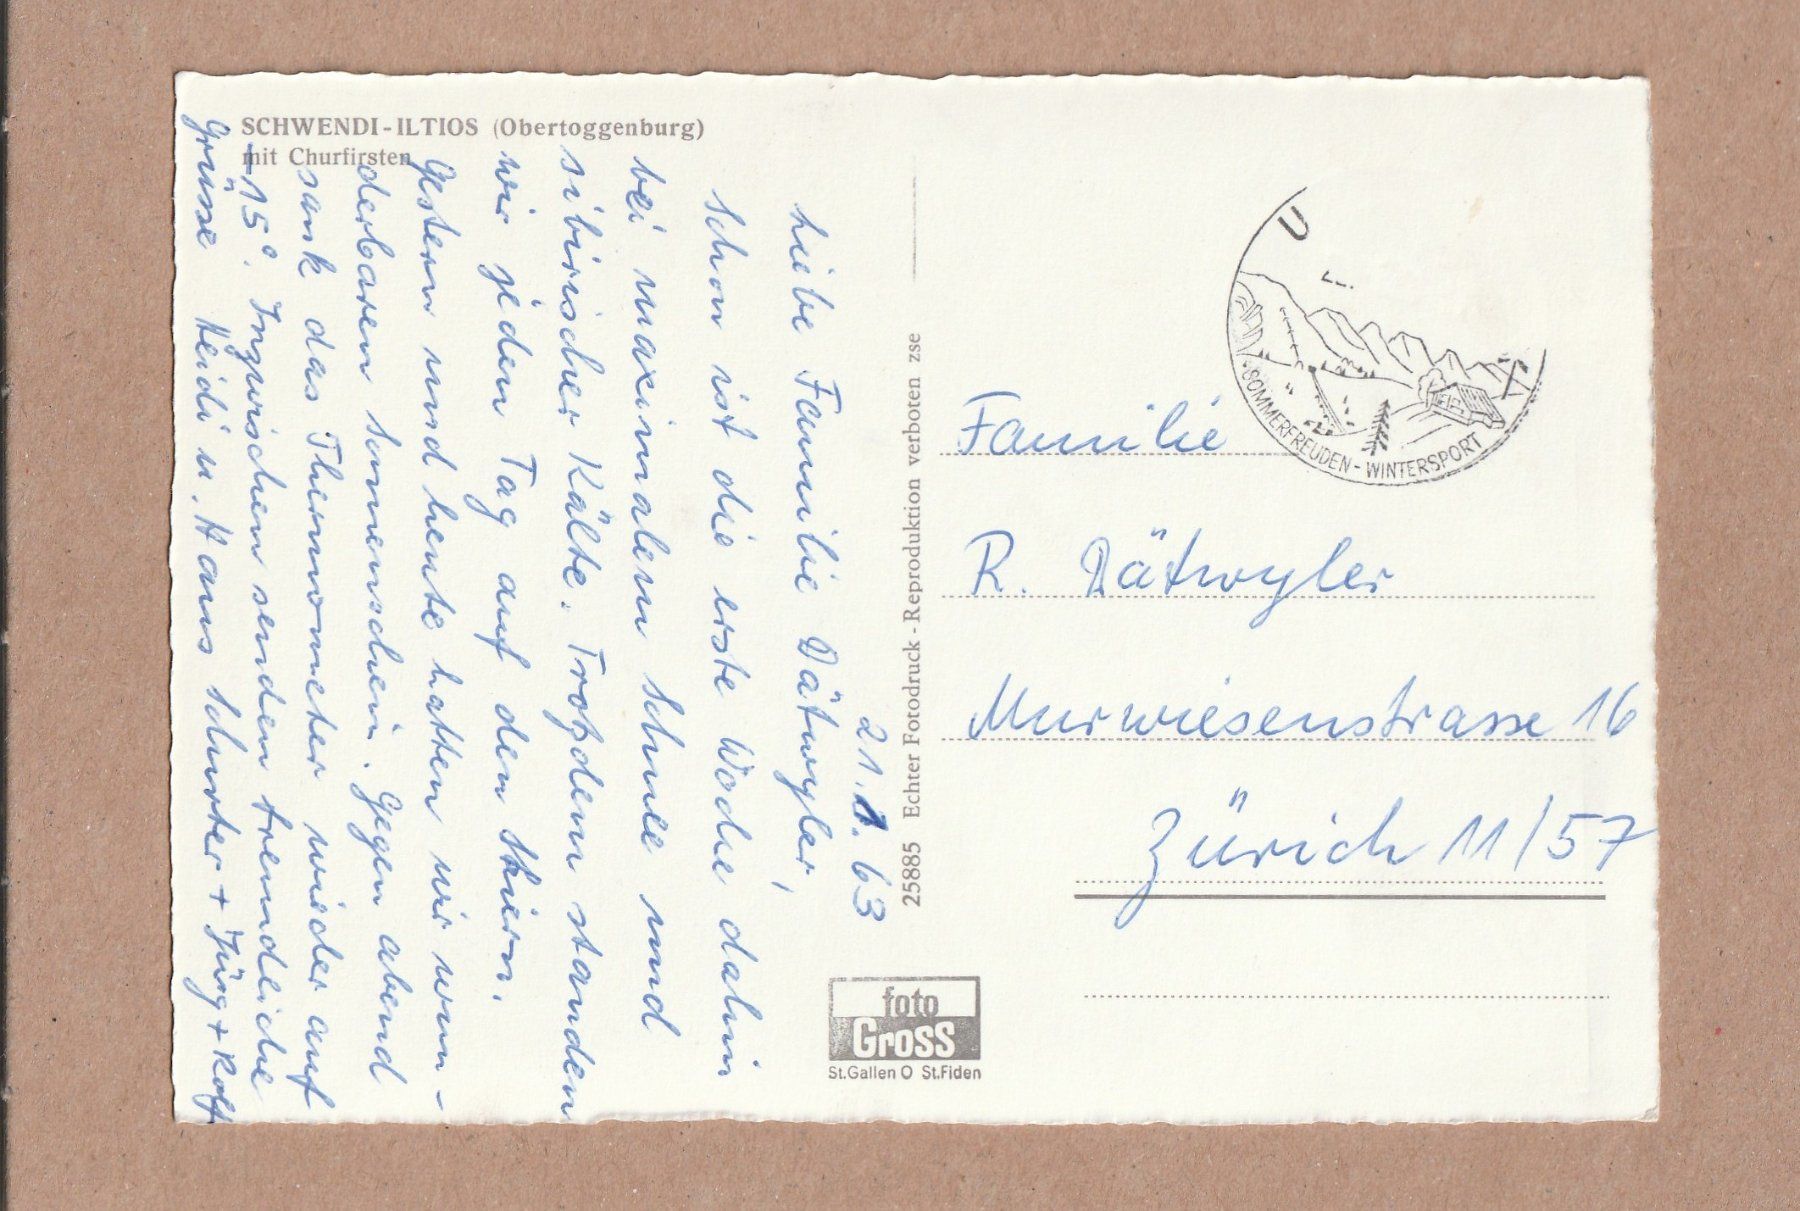 SCHWENDI-ILTIOS (Obertoggenburg)
mit Churfirsten
21.1.63
Liebe Familie Dätwyler,
Schon ist die erste Woche dahin
bei maximalem Schnee und
sibirischer Kälte. Trotzdem standen
wir jeden Tag auf den Skiern.
Gestern und heute hatten wir wun-
derbaren Sonnenschein. Gegen abend
sank das Thermometer wieder auf
-15°. Inzwischen senden freundliche
Grüsse Heidi u. Hans Schurter + Jürg + Rolf
25885 Echter Fotodruck - Reproduktion verboten zse
foto
Gross
St.Gallen O St.Fiden
SOMMERFREUDEN - WINTERSPORT
Familie
R. Dätwyler
Murwiesenstrasse 16
Zürich 11/57